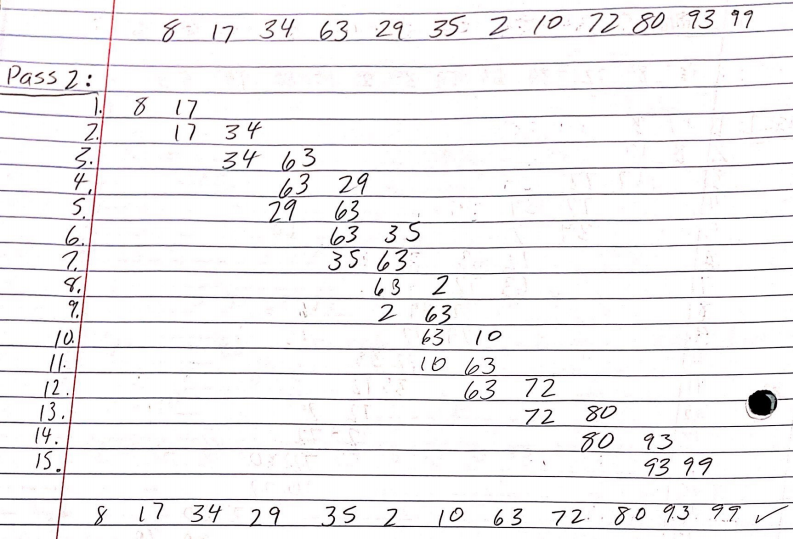 8 17 34 63 29 35 2 10 72 80 93 99
Pass 2:
1. 8 17
2. 17 34
3. 34 63
4. 63 29
5. 29 63
6. 63 35
7. 35 63
8. 63 2
9. 2 63
10. 63 10
11. 10 63
12. 63 72
13. 72 80
14. 80 93
15. 93 99
8 17 34 29 35 2 10 63 72 80 93 99 ✓